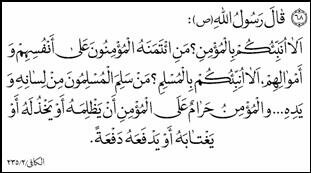 ٦٨ قَالَ رَسُولُ اللهِ (ص):
اَلاٰ اُنَبِّئُكُمْ بِالْمُؤْمِنِ؟ مَنِ ائْتَمَنَهُ الْمُؤْمِنُونَ عَلىٰ أَنْفُسِهِمْ وَ
أَمْوٰالِهِمْ. اَلاٰ اُنَبِّئُكُمْ بِالْمُسْلِمِ؟ مَنْ سَلِمَ الْمُسْلِمُونَ مِنْ لِسٰانِهِ وَ
يَدِهِ... وَالْمُؤْمِنُ حَرٰامٌ عَلَى الْمُؤْمِنِ أَنْ يَظْلِمَهُ أَوْ يَخْذُلَهُ أَوْ
يَغْتٰابَهُ أَوْ يَدْفَعَهُ دَفْعَةً.
الكافی/٢/٢٣٥